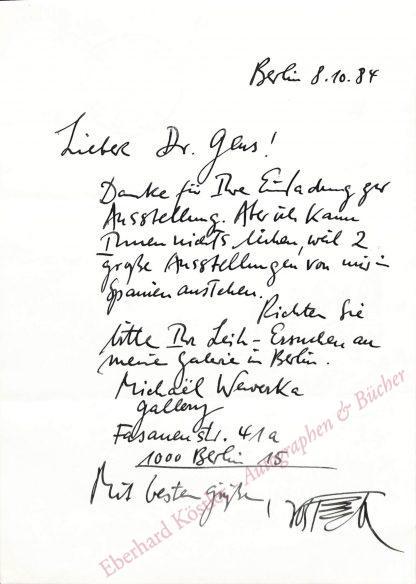 Berlin 8.10.84
Lieber Dr. Glas!
Danke für Ihre Einladung zur
Ausstellung. Aber ich kann
Ihnen nichts leihen, weil 2
große Ausstellungen von mir in
Spanien anstehen.
Richten Sie
bitte Ihr Leih-Ersuchen an
meine Galerie in Berlin.
Michaël Wewerka
gallery
Fasanenstr. 41a
1000 Berlin 15
Mit besten Grüßen,
Eberhard Köstler Autographen & Bücher